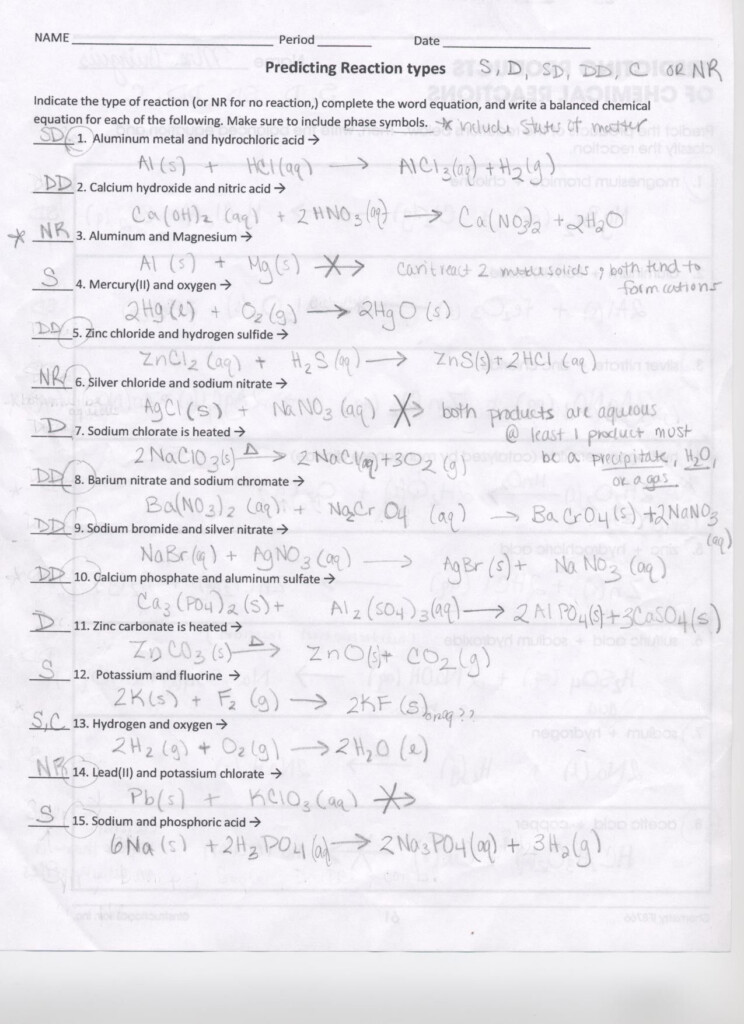 NAME Period Date
Predicting Reaction types S, D, SD, DD, C OR NR
Indicate the type of reaction (or NR for no reaction,) complete the word equation, and write a balanced chemical
equation for each of the following. Make sure to include phase symbols. * include States of matter
SD 1. Aluminum metal and hydrochloric acid →
Al (s) + HCl (aq) → AlCl3 (aq) + H2 (g)
DD 2. Calcium hydroxide and nitric acid →
Ca(OH)2 (aq) + 2 HNO3 (aq) → Ca(NO3)2 + 2H2O
* NR 3. Aluminum and Magnesium →
Al (s) + Mg (s) → can't react 2 solids; both tend to
form cations
S 4. Mercury(II) and oxygen →
2Hg (l) + O2 (g) → 2HgO (s)
DD 5. Zinc chloride and hydrogen sulfide →
ZnCl2 (aq) + H2S (aq) → ZnS(s) + 2HCl (aq)
NR 6. Silver chloride and sodium nitrate →
AgCl (s) + NaNO3 (aq) → both products are aqueous
@ least 1 product must
D 7. Sodium chlorate is heated →
2 NaClO3(s) Δ→ 2 NaCl(aq) + 3O2 (g) be a precipitate, H2O,
or a gas
DD 8. Barium nitrate and sodium chromate →
Ba(NO3)2 (aq) + Na2CrO4 (aq) → BaCrO4 (s) + 2NaNO3
(aq)
DD 9. Sodium bromide and silver nitrate →
NaBr (aq) + AgNO3 (aq) → AgBr (s) + NaNO3 (aq)
DD 10. Calcium phosphate and aluminum sulfate →
Ca3(PO4)2 (s) + Al2(SO4)3(aq) → 2AlPO4(s) + 3CaSO4(s)
D 11. Zinc carbonate is heated →
ZnCO3 (s) Δ→ ZnO(s) + CO2 (g)
S 12. Potassium and fluorine →
2K(s) + F2 (g) → 2KF (s) or aq??
S,C 13. Hydrogen and oxygen →
2H2 (g) + O2 (g) → 2H2O (l)
NR 14. Lead(II) and potassium chlorate →
Pb(s) + KClO3 (aq) →
S 15. Sodium and phosphoric acid →
6Na (s) + 2H3PO4 (aq) → 2 Na3PO4 (aq) + 3H2 (g)